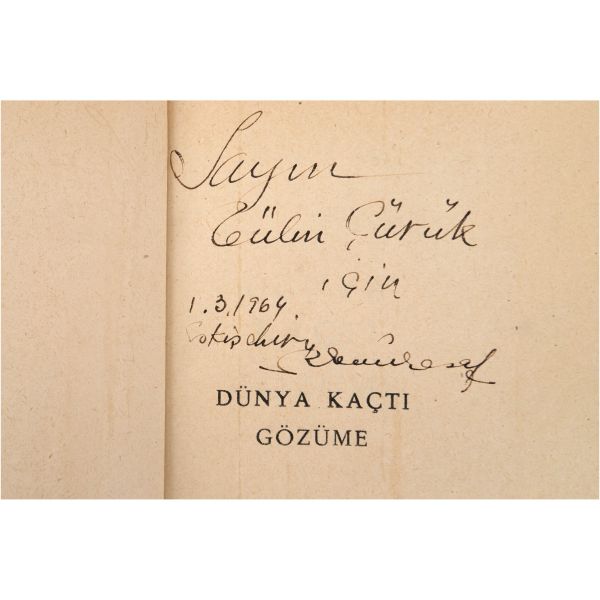 Sayın
Tülin Çürük
için
1.3.1964
Eskişehir Özdemir Asaf
DÜNYA KAÇTI
GÖZÜME